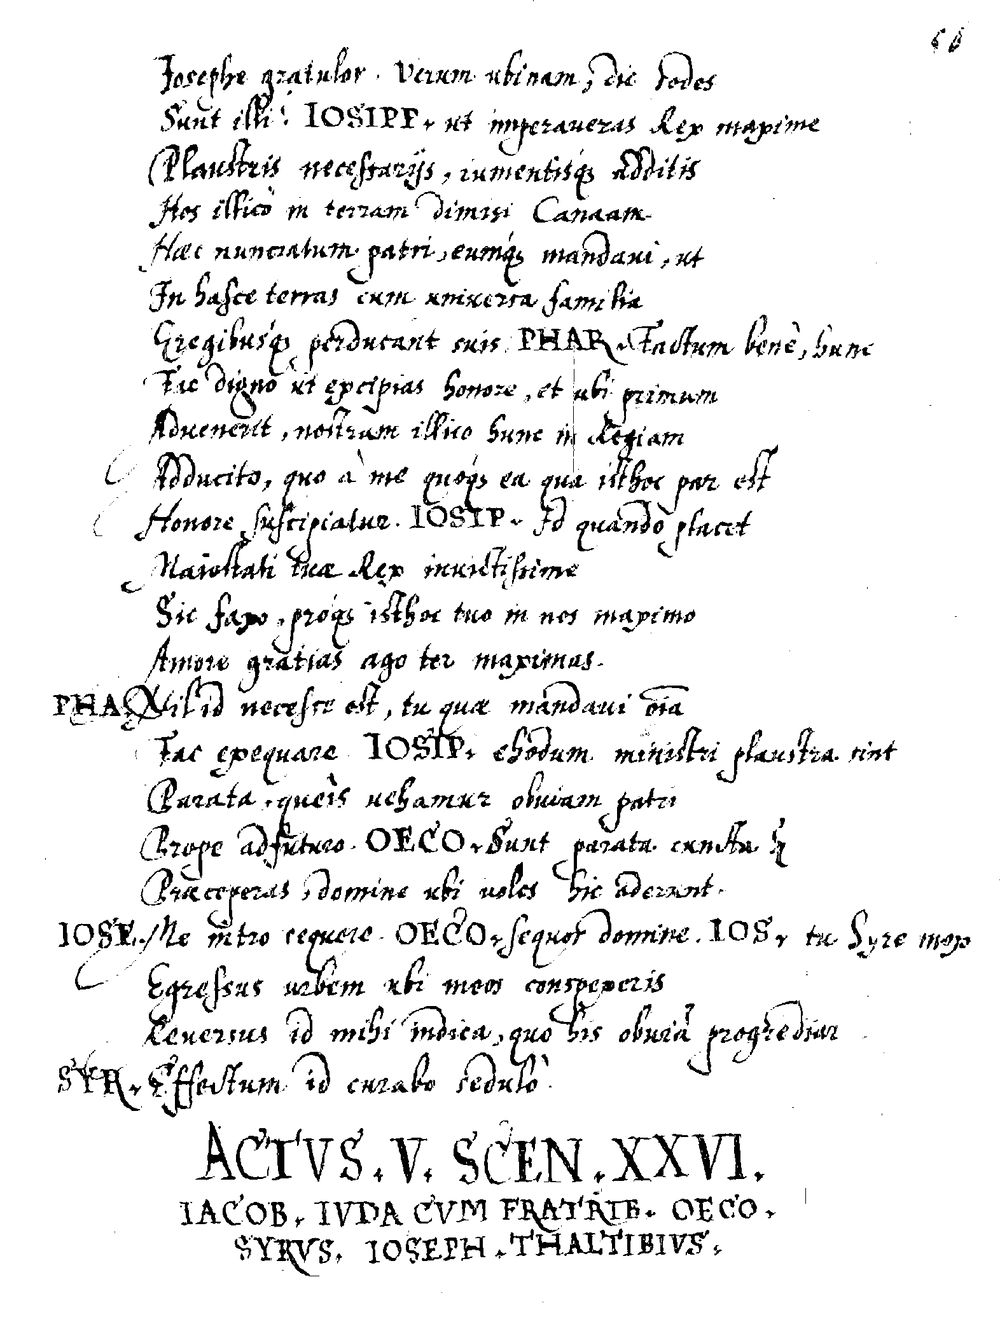 Iosephe gratulor. Verum ubinam, dic sodes
Sunt illi? IOSIPF. ut imperaueras Rex maxime
Plaustris necessarijs, iumentisq́; additis
Hos illicò in terram dimisi Canaam
Hæc nunciatum patri, eumq́; mandaui, ut
In hasce terras cum uniuersa familia
Gregibusq́; perducant suis. PHAR. Factum benè, hunc
Fac digno ut excipias honore, et ubi primum
Aduenerit, nostram illico hunc in Regiam
Adducito, quo à me quoq́; ea qua isthoc par est
Honore suscipiatur. IOSIP. Id quando placet
Maiestati tuæ Rex inuictissime
Sic faxo, proq́; isthoc tuo in nos maximo
Amore gratias ago ter maximas.
PHA. Nil id necesse est, tu quæ mandaui oīa
Fac exequare IOSIP. ehodum ministri plaustra sint
Parata, queis uehamur obuiam patri
Prope adfuturo. OECO. Sunt parata cuncta
Præceperas, domine ubi uoles hic aderunt.
IOSE. Me intro sequere. OECO. sequor domine. IOS. tu Syre mox
Egressus urbem ubi meos conspexeris
Reuersus id mihi indica, quo his obuiā progrediar
SYR. Effectum id curabo sedulò.
ACTVS. V. SCEN. XXVI.
IACOB. IVDA CVM FRATRIB. OECO.
SYRVS. IOSEPH. THALTIBIVS.